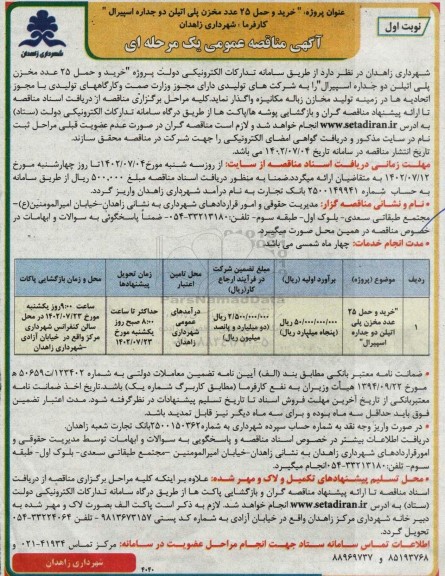 عنوان پروژه: " خرید و حمل ۲۵ عدد مخزن پلی اتیلن دو جداره اسپیرال "
کارفرما : شهرداری زاهدان
نوبت اول
آگهی مناقصه عمومی یک مرحله ای
شهرداری زاهدان
شهرداری زاهدان در نظر دارد از طریق سامانه تدارکات الکترونیکی دولت پروژه "خرید و حمل ۲۵ عدد مخزن
پلی اتیلن دو جداره اسپیرال"را به شرکت های تولیدی دارای مجوز وزارت صمت وکارگاههای تولیدی با مجوز
اتحادیه ها در زمینه تولید مخازن زباله مکانیزه واگذار نماید.کلیه مراحل برگزاری مناقصه از دریافت اسناد مناقصه
تا ارائه پیشنهاد مناقصه گران و بازگشایی پوشه ها/پاکت ها از طریق درگاه سامانه تدارکات الکترونیکی دولت (ستاد)
به آدرس www.setadiran.ir انجام خواهد شد و لازم است مناقصه گران در صورت عدم عضویت قبلی مراحل ثبت
نام در سایت مذکور و دریافت گواهی امضای الکترونیکی را جهت شرکت در مناقصه محقق سازند.
تاریخ انتشار مناقصه در سامانه تاریخ ۱۴۰۲/۰۷/۰۴ می باشد.
مهلت زمانی دریافت اسناد مناقصه از سایت: از روزسه شنبه مورخ۱۴۰۲/۰۷/۰۴تا روز چهارشنبه مورخ
۱۴۰۲/۰۷/۱۲ به متقاضیان ارائه میگردد.ضمنا به منظور دریافت اسناد مناقصه مبلغ ۵۰۰,۰۰۰ ریال از طریق
به حساب شماره ۲۵۰۰۱۴۹۹۴۱ بانک تجارت به نام درآمد شهرداری زاهدان واریز گردد.
• نام و نشانی مناقصه گزار: مدیریت حقوقی و امور قراردادهای شهرداری به نشانی زاهدان-خیابان امیرالمومنین(ع)-
مجتمع طبقاتی سعدی- بلوک اول- طبقه سوم- تلفن:۳۳۲۱۳۱۸۰-۰۵۴ ضمناً پاسخگوئی به سوالات و ابهامات در
خصوص مناقصه در همین محل صورت میگیرد.
• مدت انجام خدمات: چهار ماه شمسی می باشد.
ردیف موضوع (پروژه) برآورد اولیه (ریال) مبلغ تضمین شرکت در فرآیند ارجاع کار(ریال) محل تامین اعتبار زمان تحویل پیشنهادها محل و زمان بازگشایی پاکات
۱ "خرید و حمل ۲۵ عدد مخزن پلی اتیلن دو جداره اسپیرال" ۵۰/۰۰۰/۰۰۰/۰۰۰ ریال (پنجاه میلیارد ریال) ۲/۵۰۰/۰۰۰/۰۰۰ (دو میلیارد و پانصد میلیون ریال) درآمدهای عمومی شهرداری زاهدان حداکثر تا ساعت ۸:۰۰ صبح روز یکشنبه مورخ ۱۴۰۲/۰۷/۲۳ ساعت ۹:۰۰ روز یکشنبه مورخ ۱۴۰۲/۰۷/۲۳ در محل سالن کنفرانس شهرداری مرکز واقع در خیابان آزادی -شهرداری زاهدان
• ضمانت نامه معتبر بانکی مطابق بند (الف) آیین نامه تضمین معاملات دولتی به شماره ۱۲۳۴۰۲/ت۵۰۶۵۹ ه
مورخ ۱۳۹۴/۰۹/۲۲ هیأت وزیران به نفع کارفرما (مطابق کاربرگ شماره یک) باشد.تاریخ اخذ ضمانت نامه
معتبربانکی از تاریخ آخرین مهلت فروش اسناد تا تاریخ تسلیم پیشنهادات در نظرگرفته شود. مدت اعتبار تضمین
فوق باید حداقل سه ماه بوده و برای سه ماه دیگر نیز قابل تمدید باشد.
• در صورت واریز وجه نقد به شماره حساب سپرده شهرداری به شماره۲۵۰۰۱۵۰۳۶۲بانک تجارت شعبه زاهدان.
دریافت اطلاعات بیشتر در خصوص اسناد مناقصه و پاسخگویی به سوالات و ابهامات توسط مدیریت حقوقی و
امورقراردادهای شهرداری به نشانی زاهدان-خیابان امیرالمومنین -مجتمع طبقاتی سعدی- بلوک اول- طبقه
سوم- تلفن:۳۳۲۱۳۱۸۰-۰۵۴انجام میگیرد.
• محل تسلیم پیشنهادهای تکمیل و لاک و مهر شده: علاوه بر اینکه کلیه مراحل برگزاری مناقصه از دریافت
اسناد مناقصه تا ارائه پیشنهاد مناقصه گران و بازگشایی پاکت ها از طریق درگاه سامانه تدارکات الکترونیکی دولت
(ستاد) به آدرس www.setadiran.ir انجام خواهد شد. لازم به ذکر است پاکت الف بصورت لاک و مهر شده به
دبیر خانه شهرداری مرکز زاهدان واقع در خیابان آزادی به شماره کد پستی ۹۸۱۳۶۷۳۱۵۷ - تلفن ۳۳۲۲۴۰۶۴-۰۵۴
تحویل گردد.
اطلاعات تماس سامانه ستاد جهت انجام مراحل عضویت در سامانه: مرکز تماس ۴۱۹۳۴-۰۲۱ و
۸۵۱۹۳۷۶۸ و ۸۸۹۶۹۷۳۷
۴۰۴۰
شهرداری زاهدان